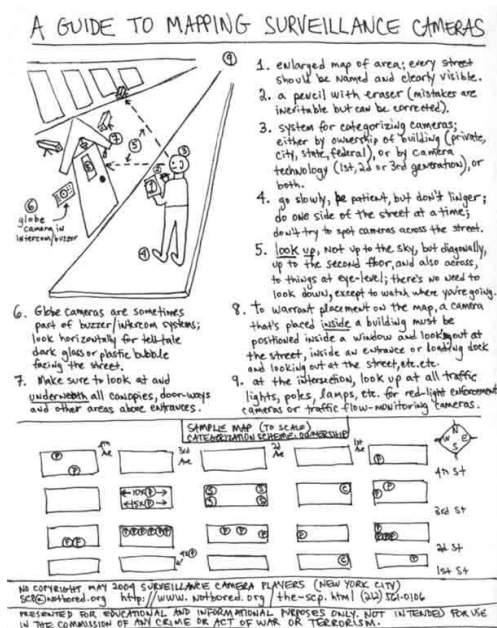 A GUIDE TO MAPPING SURVEILLANCE CAMERAS
1. enlarged map of area; every street
should be named and clearly visible.
2. a pencil with eraser (mistakes are
inevitable but can be corrected).
3. system for categorizing cameras;
either by ownership of building (private,
city, state, federal), or by camera
technology (1st, 2d or 3rd generation), or
both.
4. go slowly, be patient, but don't linger;
do one side of the street at a time;
don't try to spot cameras across the street.
5. look up, not up to the sky, but diagonally,
up to the second floor, and also across,
to things at eye-level; there's no need to
look down, except to watch where you're going.
9
7
5
3
2
1
5
6
globe
camera in
intercom/buzzer
4
6. Globe cameras are sometimes
part of buzzer/intercom systems;
look horizontally for tell-tale
dark glass or plastic bubble
facing the street.
7. Make sure to look at and
underneath all canopies, door-ways
and other areas above entrances.
8. To warrant placement on the map, a camera
that's placed inside a building must be
positioned inside a window and looking out at
the street, inside an entrance or loading dock
and looking out at the street, etc. etc.
9. at the intersection, look up at all traffic
lights, poles, lamps, etc. for red-light enforcement
cameras or traffic flow-monitoring cameras.
SAMPLE MAP (TO SCALE)
CATEGORIZATION SCHEME: OWNERSHIP
4th Ave
3rd Ave
2d Ave
1st Ave
N
W E
S
P P
P
4th St
10x P
5x P
S S
S S
C
P P
3rd St
P P
P P P P P P
P P P
P
P
P P P
2d St
4x P
C
P
1st St
NO COPYRIGHT MAY 2004 SURVEILLANCE CAMERA PLAYERS (NEW YORK CITY)
SCP@notbored.org http://www.notbored.org/the-scp.html (212) 561-0106
PRESENTED FOR EDUCATIONAL AND INFORMATIONAL PURPOSES ONLY. NOT INTENDED FOR USE
IN THE COMMISSION OF ANY CRIME OR ACT OF WAR OR TERRORISM.